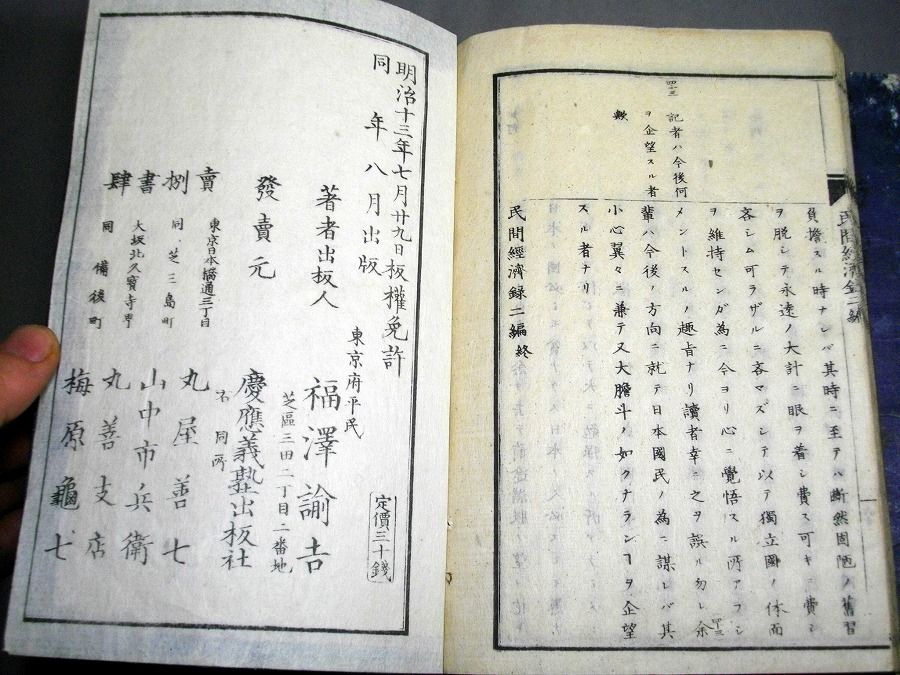 民間經濟録二編
負擔スル時ナレバ其時ニ至テハ斷然固陋ノ舊習
ヲ脱シテ永遠ノ大計ニ眼ヲ着シ費ス可キニ費シ
吝シム可ラザルニ吝マズシテ以テ獨立國ノ体面
ヲ維持センガ為ニ今ヨリ心ニ覺悟スル所アラシ
メントスルノ趣旨ナリ讀者幸ニ之ヲ誤ル勿レ余
輩ハ今後ノ方向ニ就テ日本國民ノ為ニ謀レバ其
小心翼々ニ兼テ又大膽斗ノ如クナランヿヲ企望
スル者ナリ
四十三
記者ハ今後何
ヲ企望スル者
歟
民間經濟録二編終
明治十三年七月廿九日板權免許
同年八月出版
定價三十錢
東京府平民
著者出板人 福澤諭吉
芝區三田二丁目二番地
發賣元 慶應義塾出板社
同所
賣捌書肆
東京日本橋通三丁目 丸屋善七
同芝三島町 山中市兵衛
大坂北久寳寺町 丸善支店
同備後町 梅原龜七